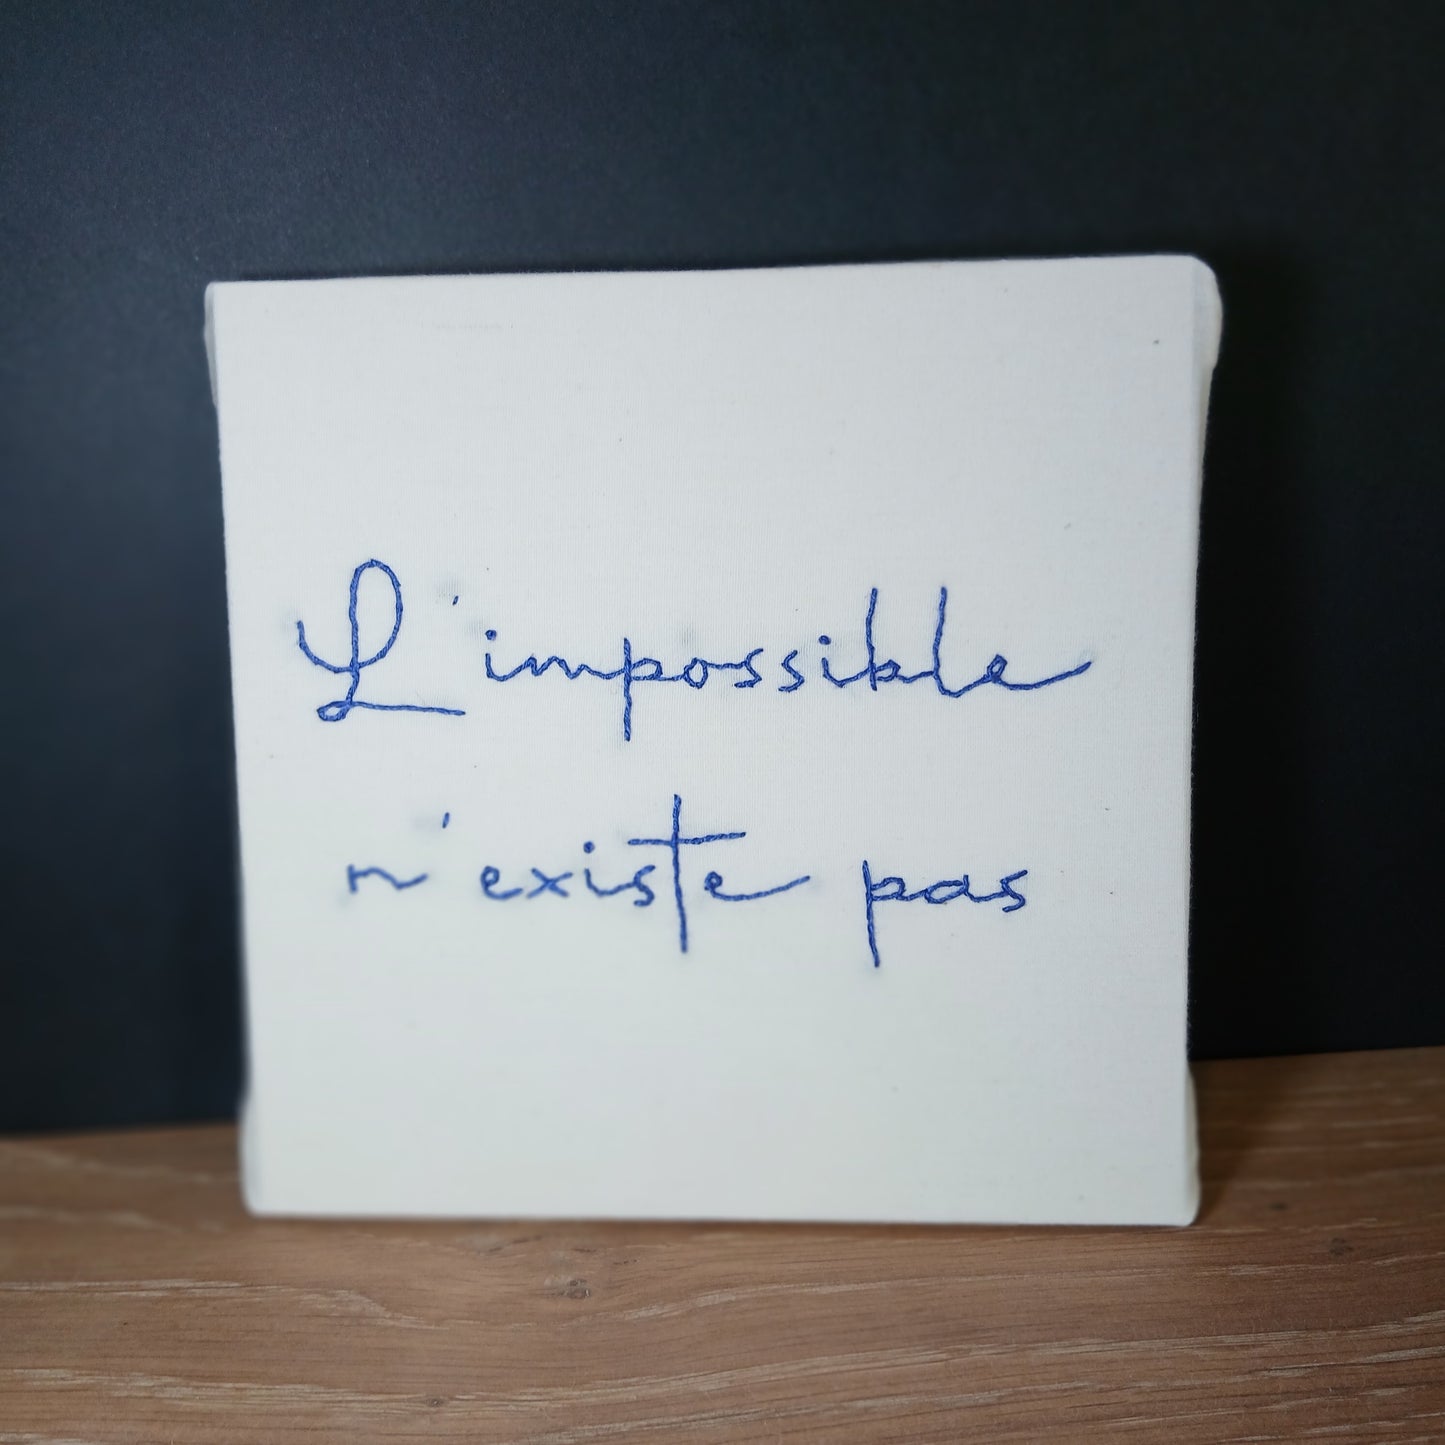 L'impossible
n'existe pas